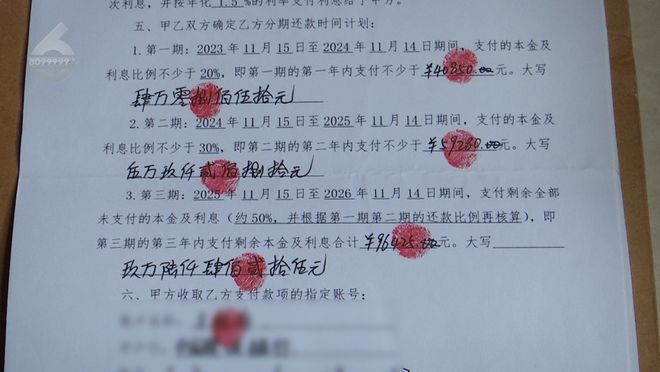 次利息，并按年化 1.5 %的利率支付利息给了甲方。
五、甲乙双方确定乙方分期还款时间计划：
8099999
1.第一期：2023 年 11 月 15 日至 2024 年 11 月 14 日期间，支付的本金及
利息比例不少于 20%，即第一期的第一年内支付不少于 ¥40850.00 元。大写
肆万零捌佰伍拾元
2.第二期：2024 年 11 月 15 日至 2025 年 11 月 14 日期间，支付的本金及
利息比例不少于 30%，即第二期的第二年内支付不少于 ¥59280.00 元。大写
伍万玖仟贰佰捌拾元
3.第三期：2025 年 11 月 15 日至 2026 年 11 月 14 日期间，支付剩余全部
未支付的本金及利息（约 50%，并根据第一期第二期的还款比例再核算），即
第三期的第三年内支付剩余本金及利息合计 ¥96425.00 元。大写
玖万陆仟肆佰贰拾伍元
六、甲方收取乙方支付款项的指定账号：